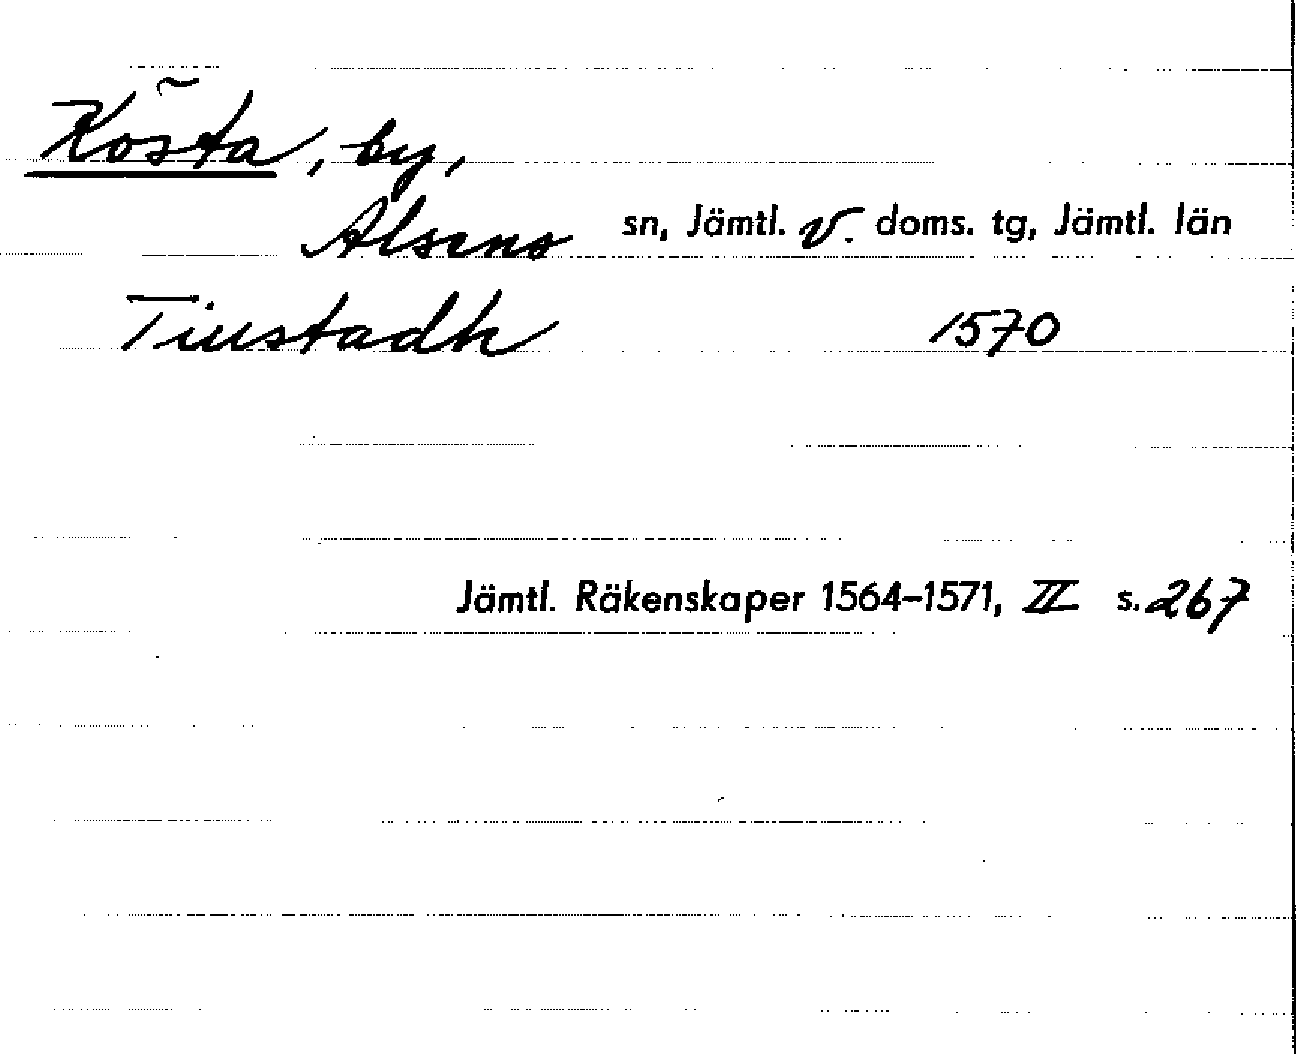 Kösta, by,
Alsens sn, Jämtl. v. doms. tg, Jämtl. län
Tiustadh 1570
Jämtl. Räkenskaper 1564-1571, II s. 267